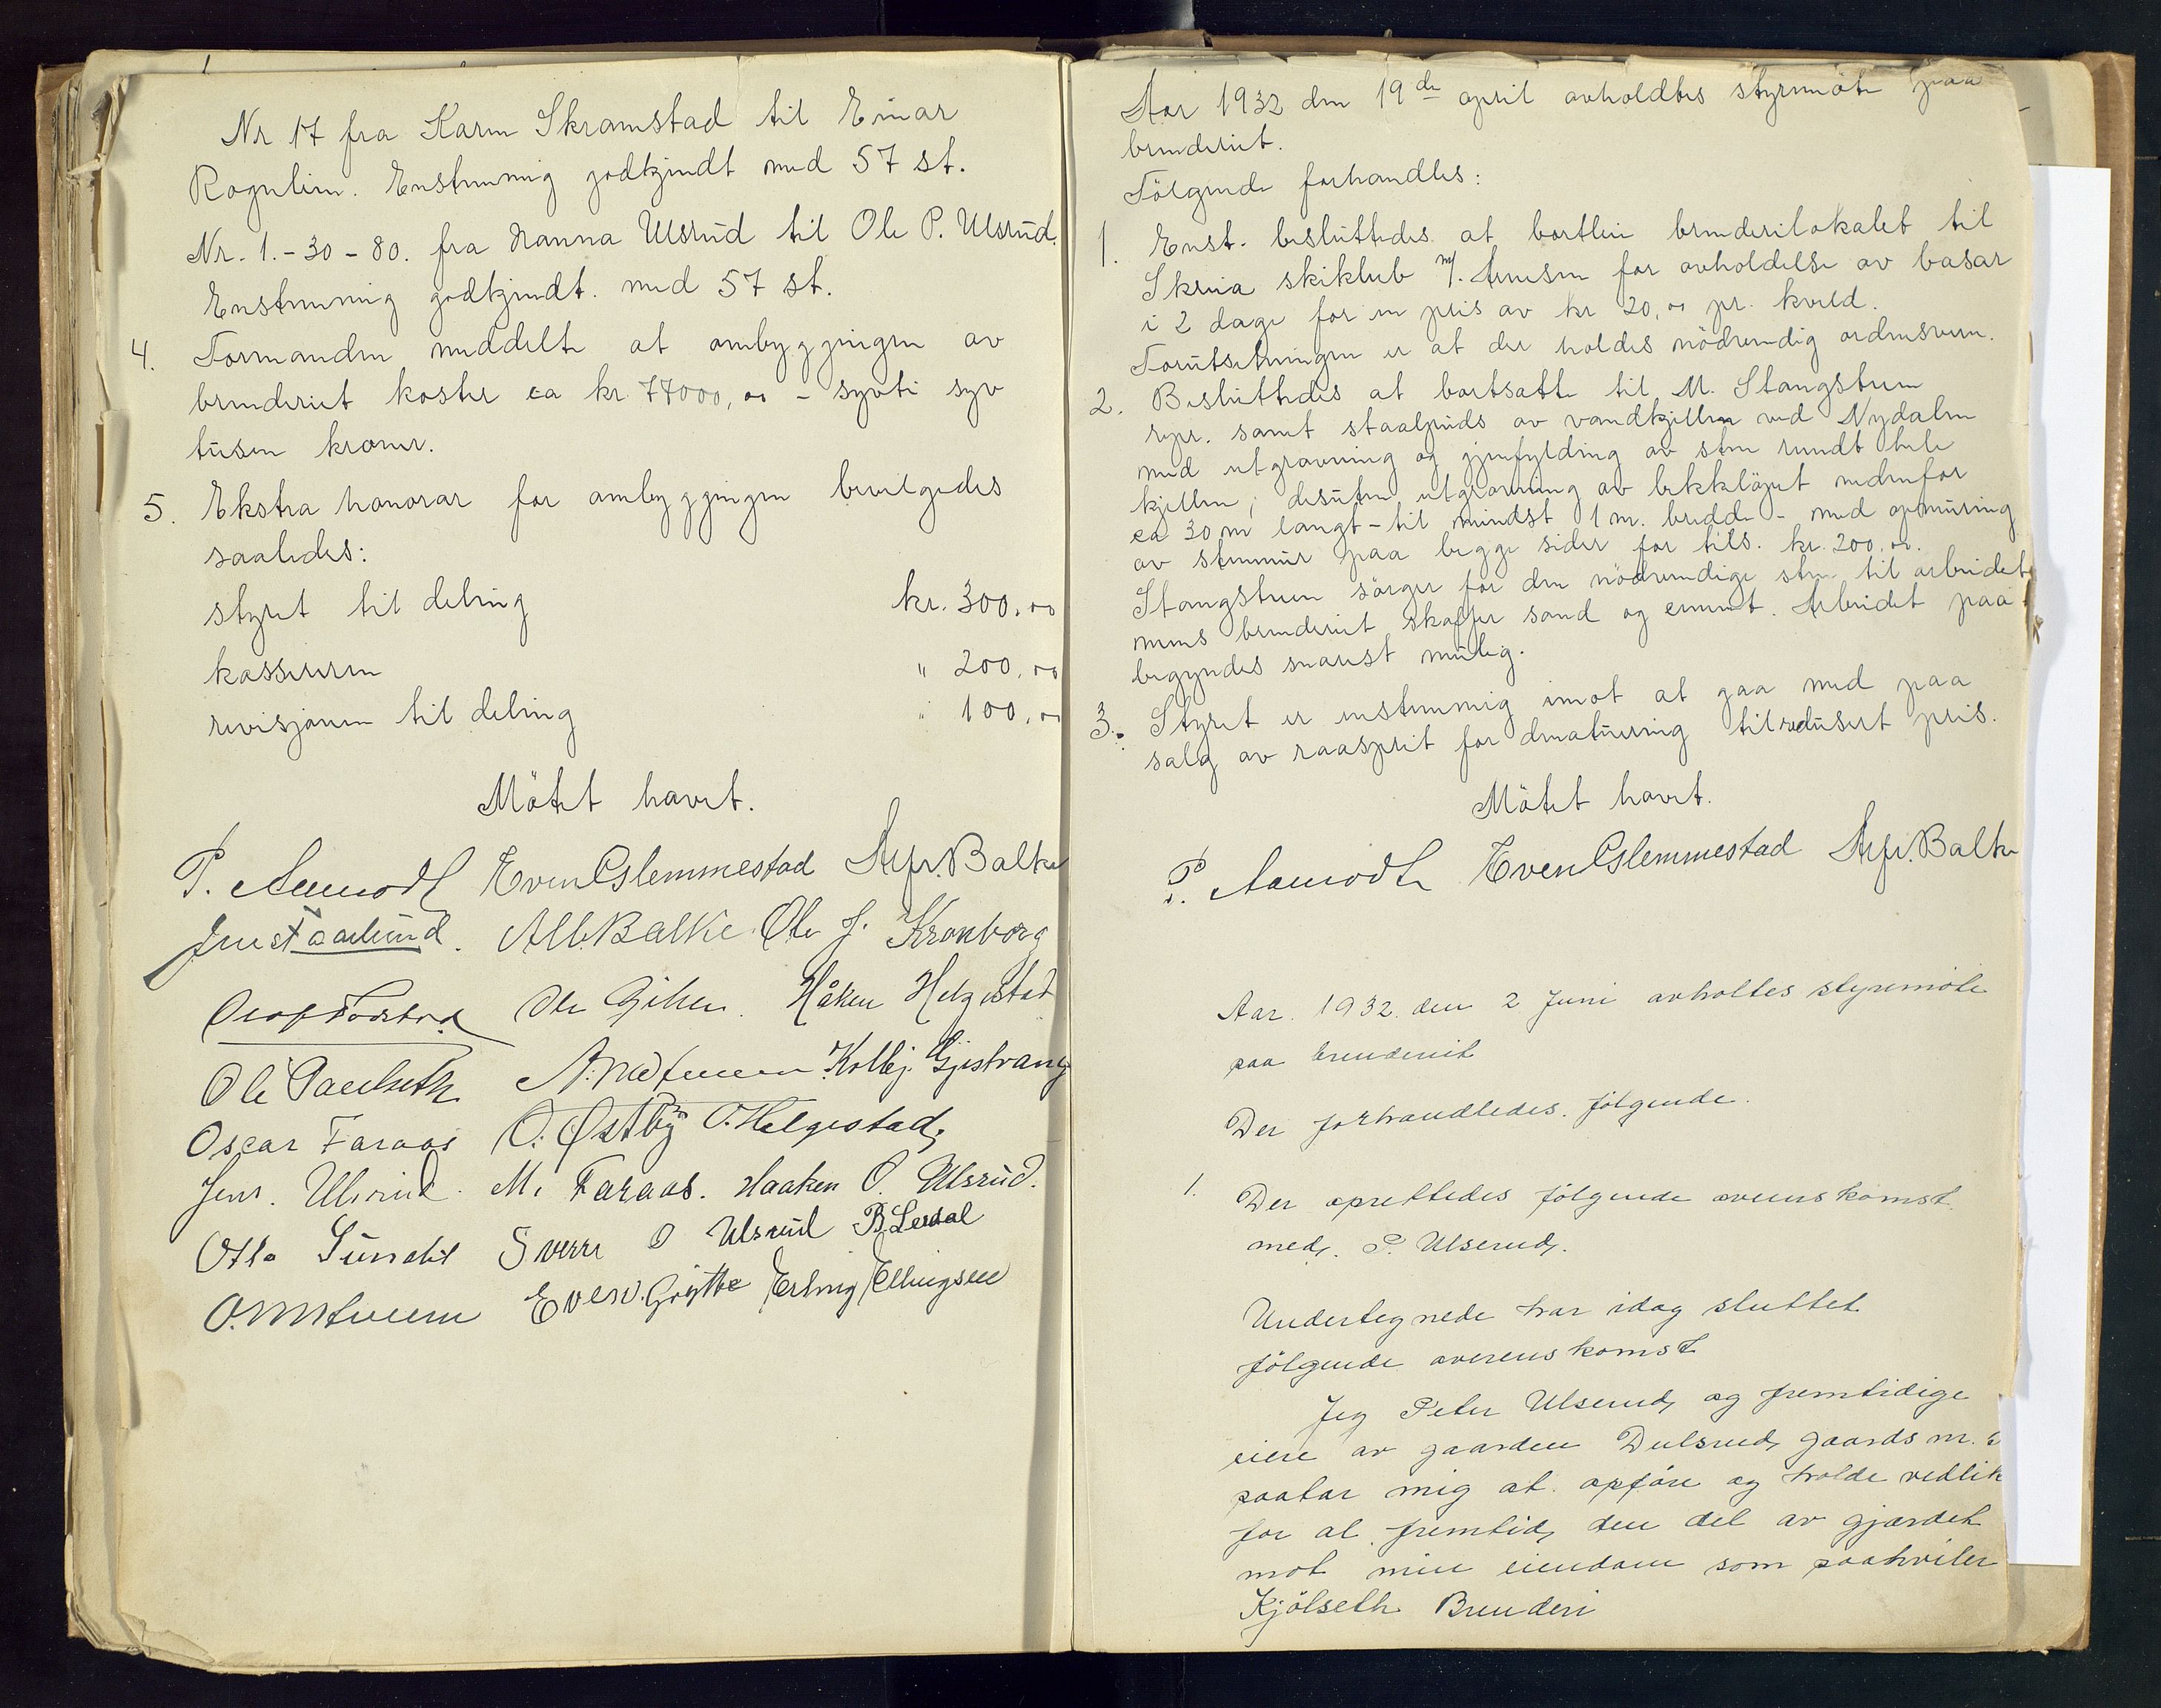 Nr 17 fra Karen Skramstad til Einar
Rognlien. Enstemmig godkjendt med 57 st.
Nr. 1.-30-80. fra Hanna Ulsrud til Ole P. Ulsrud.
Enstemmig godkjendt. med 57 st.
4. Formanden meddelte at ombyggningen av
brenderiet koster ca kr. 77000,00 - sytti syv
tusen kroner.
5. Ekstra honorar for ombyggingen bevilgedes
saaledes:
styret til deling kr. 300,00
kassereren " 200,00
revisjonen til deling " 100,00
Mötet hævet.
P. Aamodt Even Eslemmestad Alfr. Balke
Alb. Balke Ole J. Kronborg
Ole Gihle. Håken Helgestad
Ole Paulseth Kolbj. Gjestvang
Oscar Faraas O. Østby O. Helgestad
Jens. Ulsrud. M. Faraas. Haaken O. Ulsrud.
Otto Sundlid Sverre O Ulsrud B. Lerdal
Even Gröthe Erling Ellingsen
Aar 1932 den 19de april avholdtes styremöte paa
brenderiet.
Fölgende forhandles:
1. Enst. besluttedes at bortleie brenderilokalet til
Skreia skiklub v/. Arnesen for avholdelse av basar
i 2 dage for en pris av kr 20,00 pr. kveld.
Forutsetningen er at der holdes nödvendig ordensvern.
2. Besluttedes at bortsatte til M. Stangstuen
repr. samt staalpuds av vandkjellen ved Nydalen
med utgravning og gjenfylding av sten rundt hele
kjellen; desuten utgravning av bekkløpet nedenfor
ca 30 m langt - til mindst 1 m. bredde - med opmuring
av stenmur paa begge sider for tils. kr. 200.00.
Stangstuen sörger for den nödvendige sten til arbeidet
mens brenderiet skaffer sand og cement. Arbeidet paa-
begyndes snarest mulig.
3. Styret er enstemmig imot at gaa med paa
salg av raasprit for denaturering til redusert pris.
Mötet hævet.
P. Aamodt Even Eslemmestad Alfr. Balke
Aar. 1932. den 2 Juni avholtes styremöte
paa brenderiet
Der forhandledes. fölgende.
1. Der oprettedes fölgende overenskomst
med. P. Ulserud.
Undertegnede har idag sluttet
fölgende overenskomst
Jeg Peter Ulserud, og fremtidige
eiere av gaarden Dulsrud, gaards nr.
paatar mig at. opföre og holde vedlik
for al fremtid, den del av gjærdet
mot min eiendom som paahviler
Kjölseth Brenderi